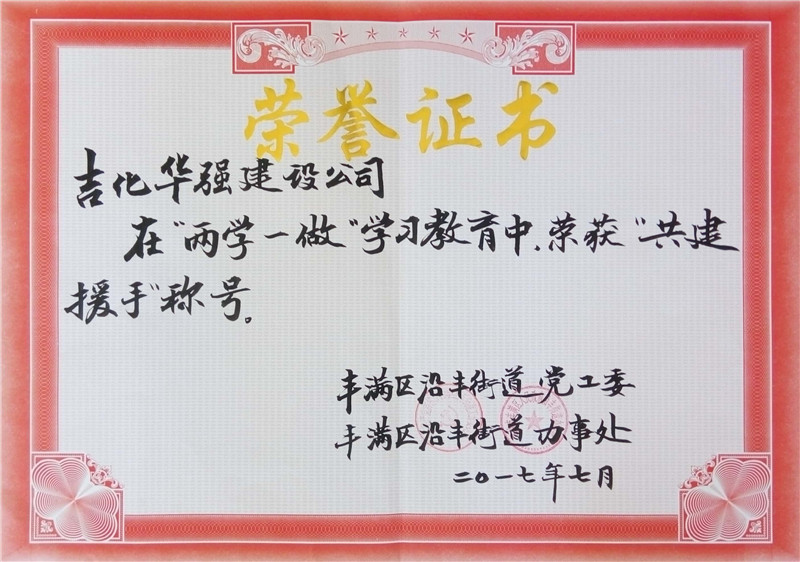 荣誉证书
吉化华强建设公司
在“两学一做”学习教育中,荣获“共建
援手”称号。
丰满区沿丰街道党工委
丰满区沿丰街道办事处
二〇一七年七月